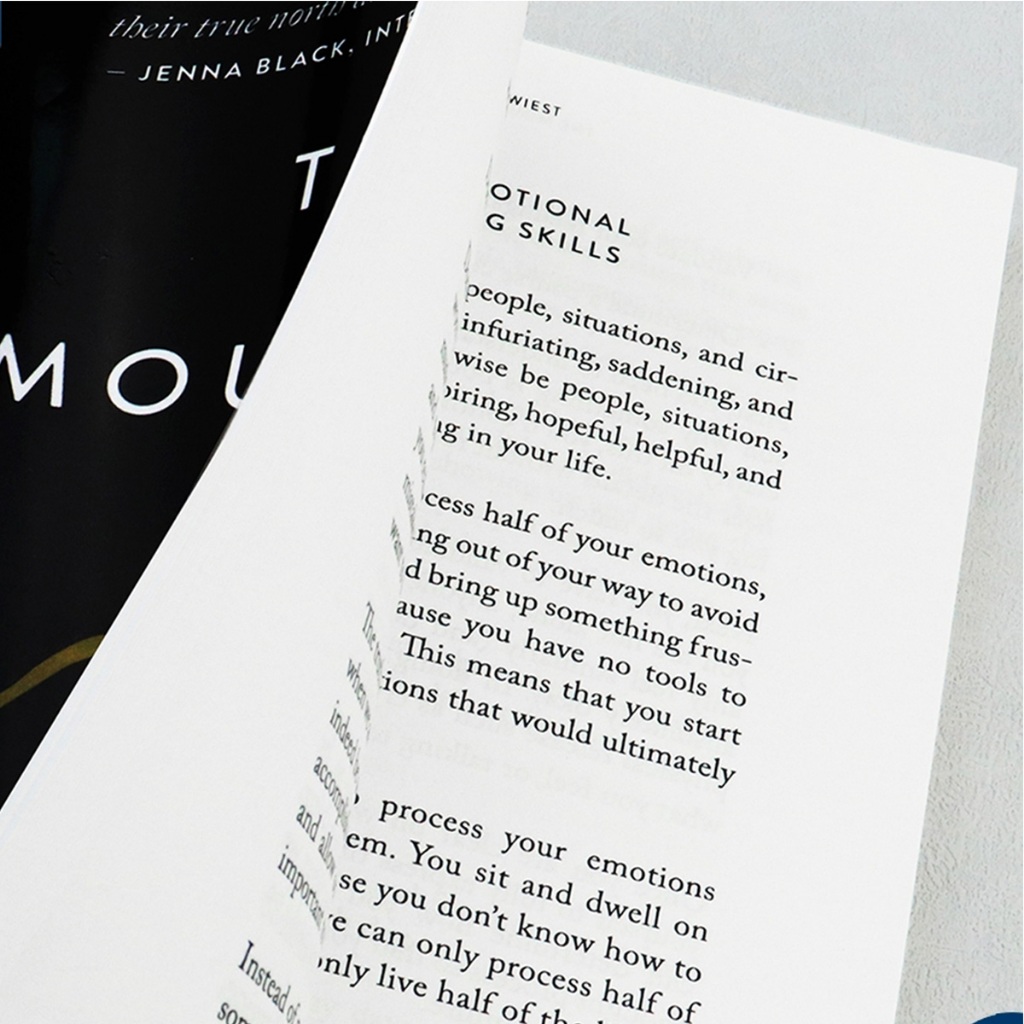 their true north
— JENNA BLACK, INT
T
MOU
WIEST
OTIONAL
G SKILLS
people, situations, and cir-
infuriating, saddening, and
wise be people, situations,
piring, hopeful, helpful, and
ng in your life.
cess half of your emotions,
ng out of your way to avoid
d bring up something frus-
ause you have no tools to
This means that you start
ions that would ultimately
process your emotions
em. You sit and dwell on
se you don't know how to
e can only process half of
only live half of the
The
indeed
and
Instead of